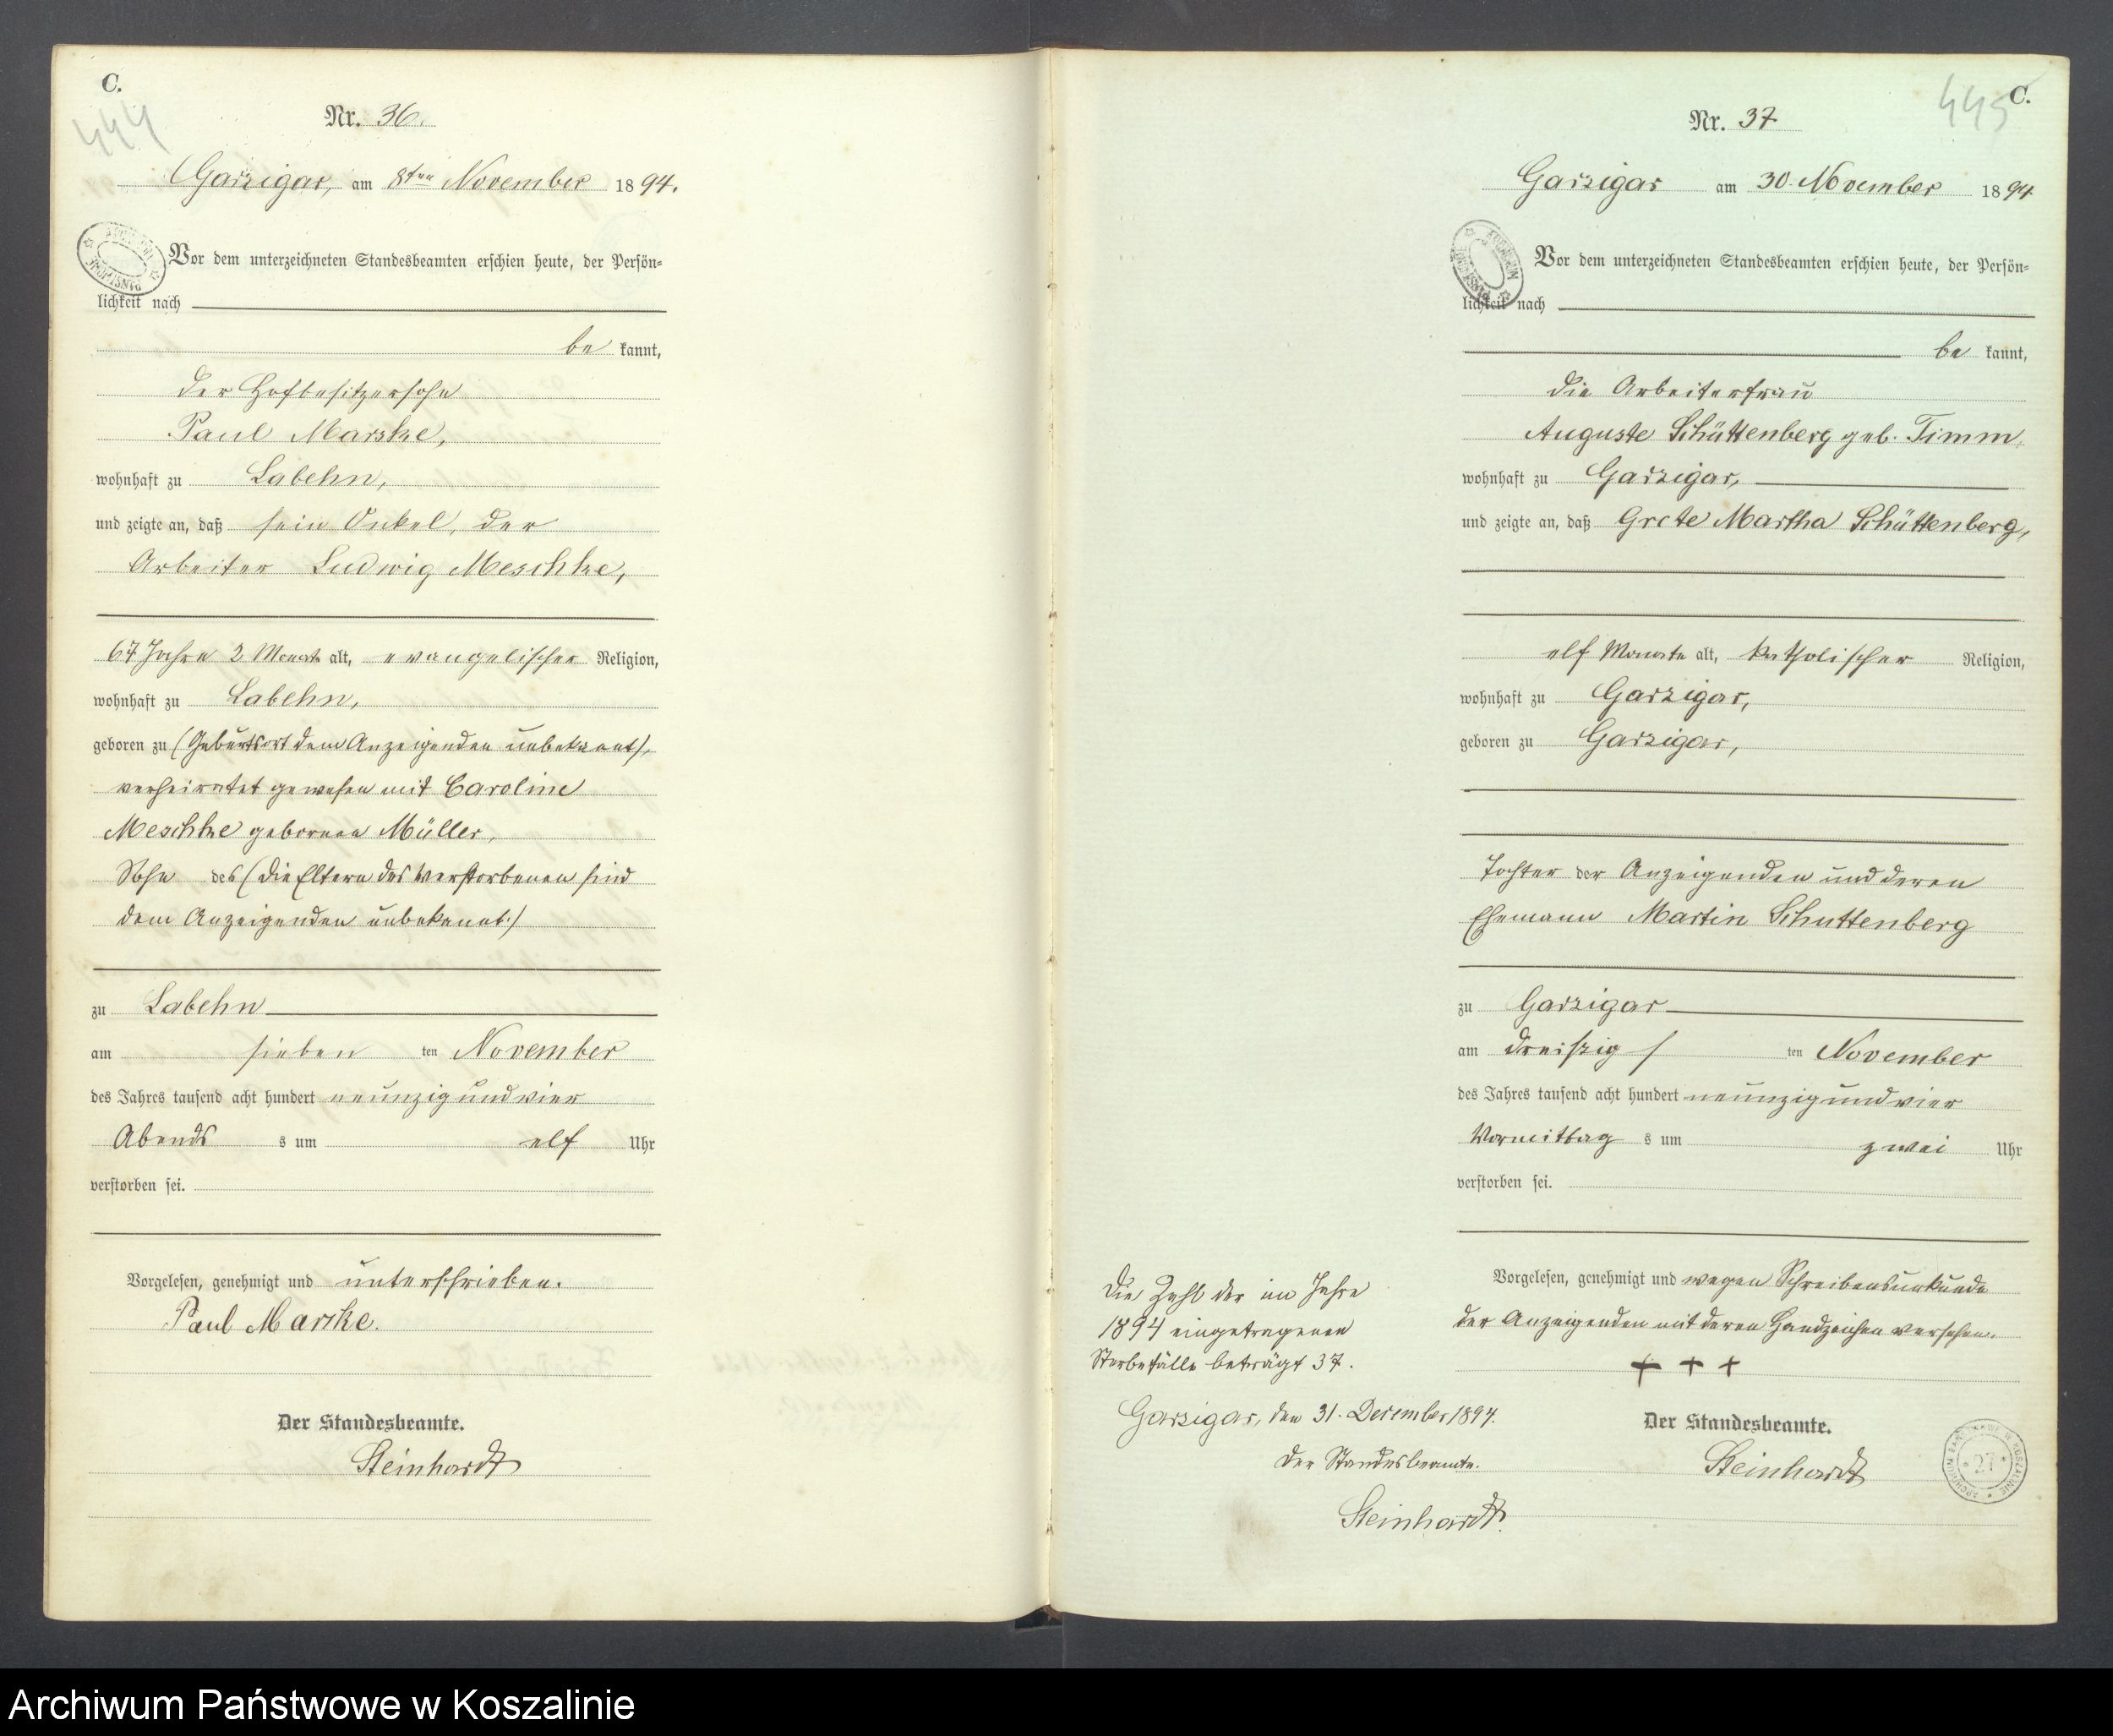 C.
444
Nr. 36.
Garzigar, am 8ten November 1894.
Vor dem unterzeichneten Standesbeamten erschien heute, der Persön-
lichkeit nach
be kannt,
der Hofbesitzersohn
Paul Marske,
wohnhaft zu Labehn,
und zeigte an, daß sein Onkel, der
Arbeiter Ludwig Meschke,
67 Jahre 2 Monate alt, evangelischer Religion,
wohnhaft zu Labehn,
geboren zu (Geburtsort dem Anzeigenden unbekannt),
verheiratet gewesen mit Caroline
Meschke geborenen Müller,
Sohn des (die Eltern des Verstorbenen sind
dem Anzeigenden unbekannt.)
zu Labehn
am sieben ten November
des Jahres tausend acht hundert neunzig und vier
Abends s um elf Uhr
verstorben sei.
Vorgelesen, genehmigt und unterschrieben.
Paul Marske.
Der Standesbeamte.
Steinhardt
C.
445
Nr. 37
Garzigar am 30. November 1894
Vor dem unterzeichneten Standesbeamten erschien heute, der Persön-
lichkeit nach
be kannt,
die Arbeiterfrau
Auguste Schüttenberg geb. Timm,
wohnhaft zu Garzigar,
und zeigte an, daß Grete Martha Schüttenberg,
elf Monate alt, katholischer Religion,
wohnhaft zu Garzigar,
geboren zu Garzigar,
Tochter der Anzeigenden und deren
Ehemann Martin Schuttenberg
zu Garzigar
am dreiszig / ten November
des Jahres tausend acht hundert neunzig und vier
Vormittag s um zwei Uhr
verstorben sei.
Vorgelesen, genehmigt und wegen Schreibensunkunde
der Anzeigenden mit deren Handzeichen versehen.
+ + +
Der Standesbeamte.
Steinhardt
Die Zahl der im Jahre
1894 eingetragenen
Sterbefälle beträgt 37.
Garzigar, den 31. Dezember 1894.
Der Standesbeamte.
Steinhardt.
ARCHIWUM PAŃSTWOWE W KOSZALINIE
27
Archiwum Państwowe w Koszalinie